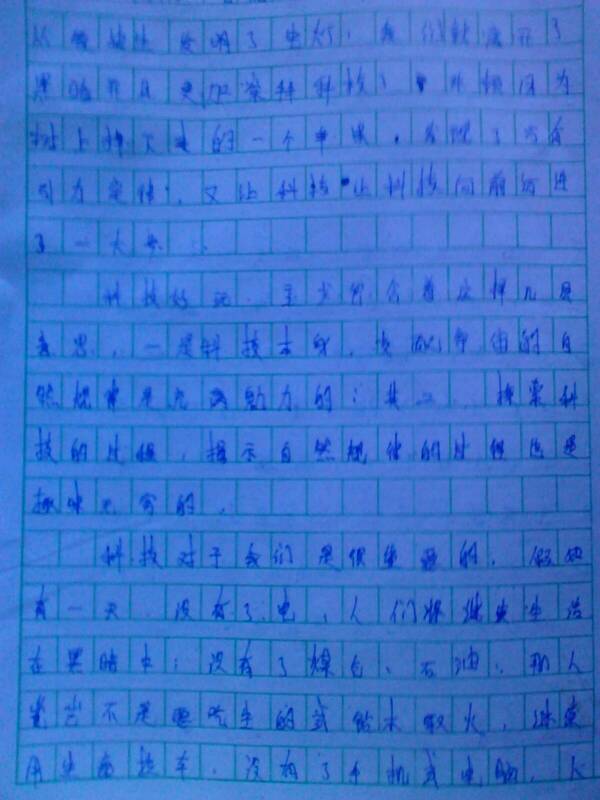 从爱迪生发明了电灯，我们就离开了
黑暗并且更加探科科技了 牛顿因为
树上掉下来的一个苹果，发现了万有
引力定律，又让科技 让科技向前迈进
了一大步．
科技好玩．至少含着这样几层
意思，一是科技本身，自然的自
然规律是充满魅力的；其二．探索科
技的过程，揭示自然规律的过程也是
趣味无穷的．
科技对于我们是很重要的．假如
有一天．没有了电，人们将继续生活
在黑暗中；没有了煤气、石油，那人
类岂不是要吃生的或钻木取火，继续
用 车，没有了手机或电脑，人